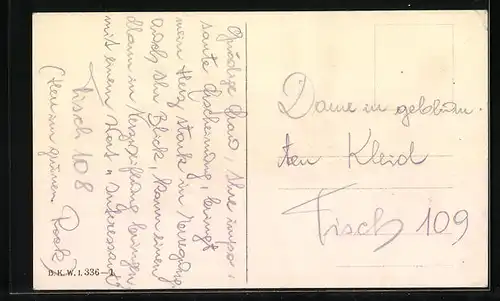 Gnädige Frau, Ihre impo-
sante Erscheinung, bringt
mein Herz stark in Bewegung
auch Ihr Blick, kann einen
Mann in Verzweiflung bringen,
mit einem Wort "Interessant"
Tisch 108
(Herr im grünen Rock)
Dame in gelbbun-
ten Kleid
Tisch 109
B.K.W.I. 336-1